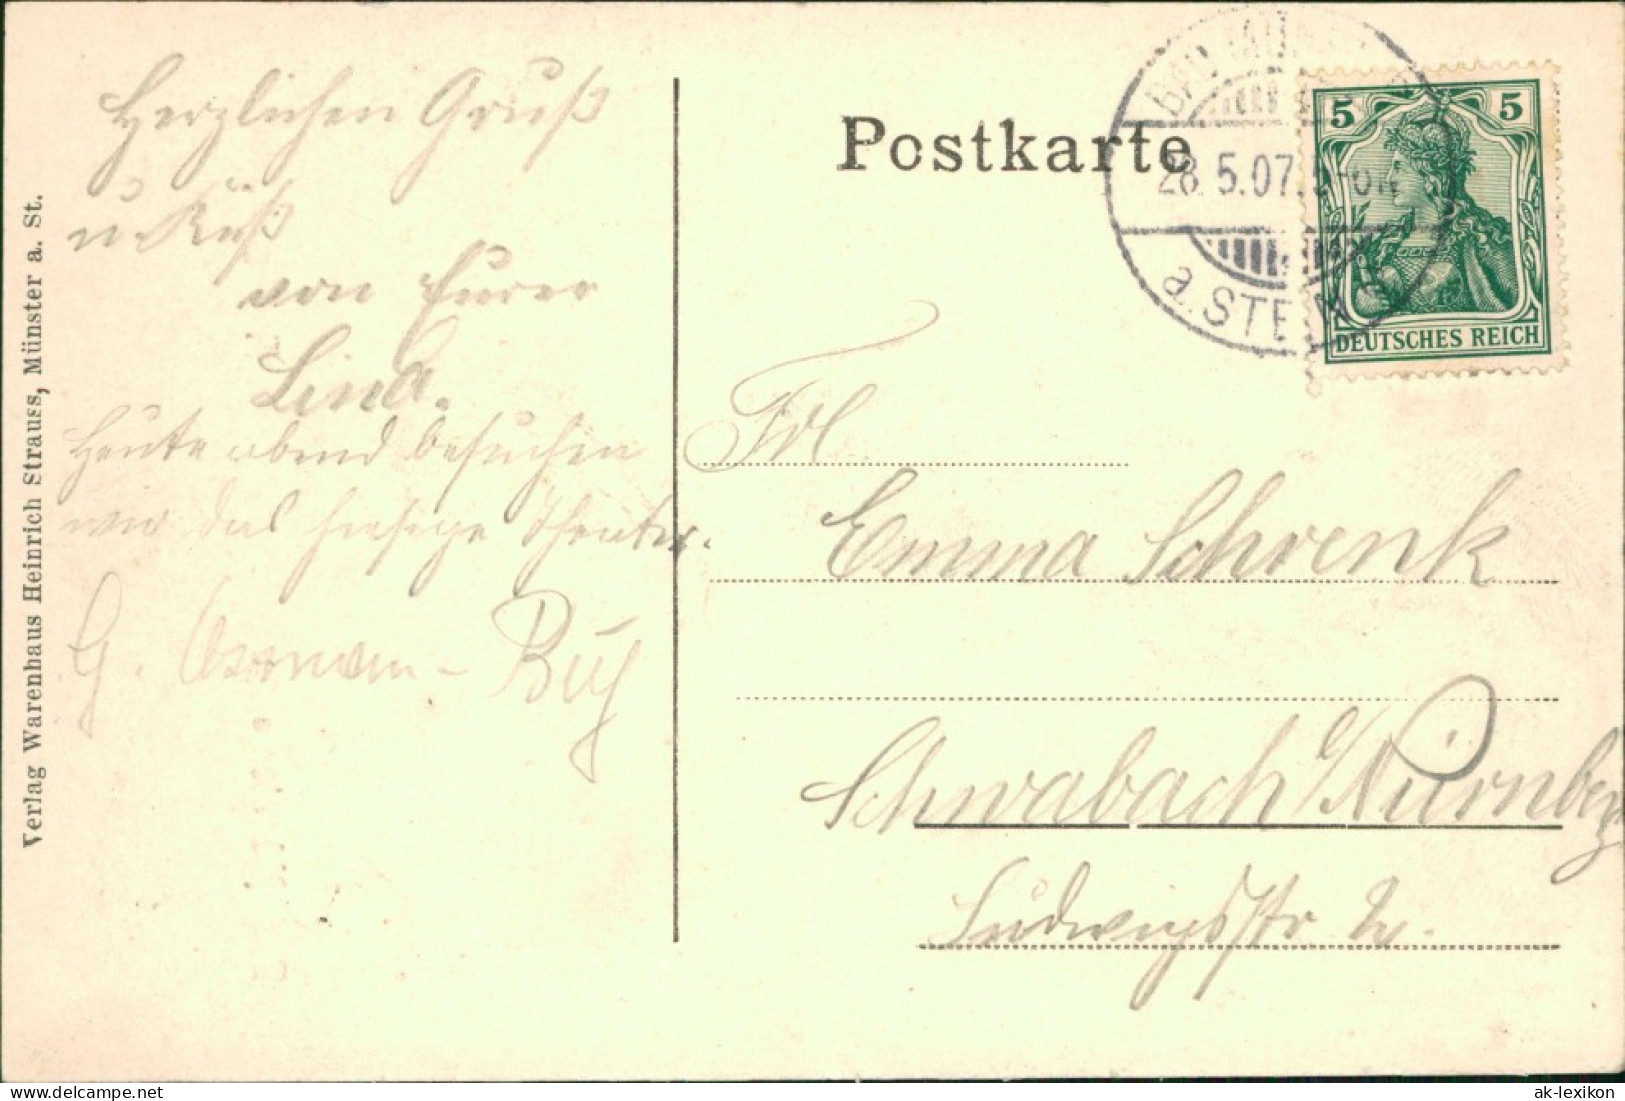 Herzlichen Gruß
u. Kuß
von Eurer
Lina.
Heute abend besuchen
wir das hiesige Theater.
G.
Verlag Warenhaus Heinrich Strauss, Münster a. St.
Postkarte
28.5.07.
a. STEIN
5 5
DEUTSCHES REICH
Frl
Emma Schrenk
Schwabach b/Nürnberg
Ludwigsstr.
ak-lexikon